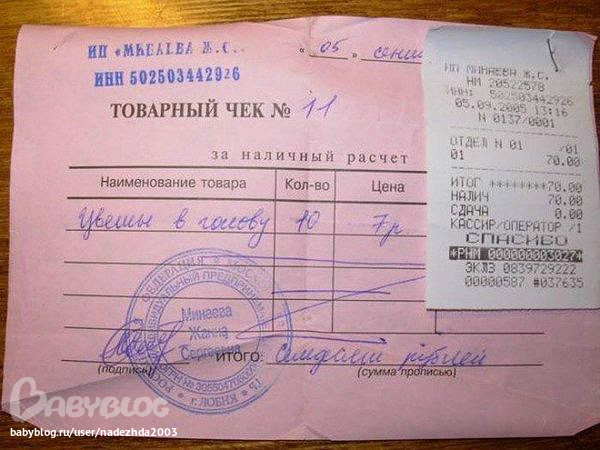 ИП «МИНАЕВА Ж.С.
« 05 » сент
ИНН 502503442926
ТОВАРНЫЙ ЧЕК № 11
за наличный расчет
Наименование товара Кол-во Цена
Цветы в голову 10 7р
Минаева
Жанна
Сергеевна
г. ЛОБНЯ
ИТОГО: Семьдесят рублей
(подпись) (сумма прописью)
ИП МИНАЕВА Ж.С.
НМ 20522578
ИНН: 502503442926
05.09.2005 13:16
N 0137/0001
ОТДЕЛ N 01 /01
01 70.00
ИТОГ ********70.00
НАЛИЧ 70.00
СДАЧА 0.00
КАССИР/ОПЕРАТОР /1
СПАСИБО
*РНМ 000000003027*
ЭКЛЗ 0839729222
00000587 #037635
BABYBLOG
babyblog.ru/user/nadezhda2003